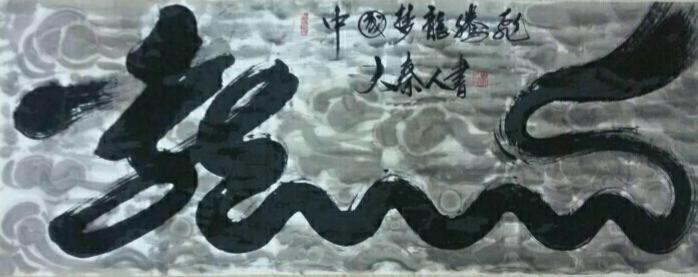 龍
中國梦龍騰飛
大秦人書